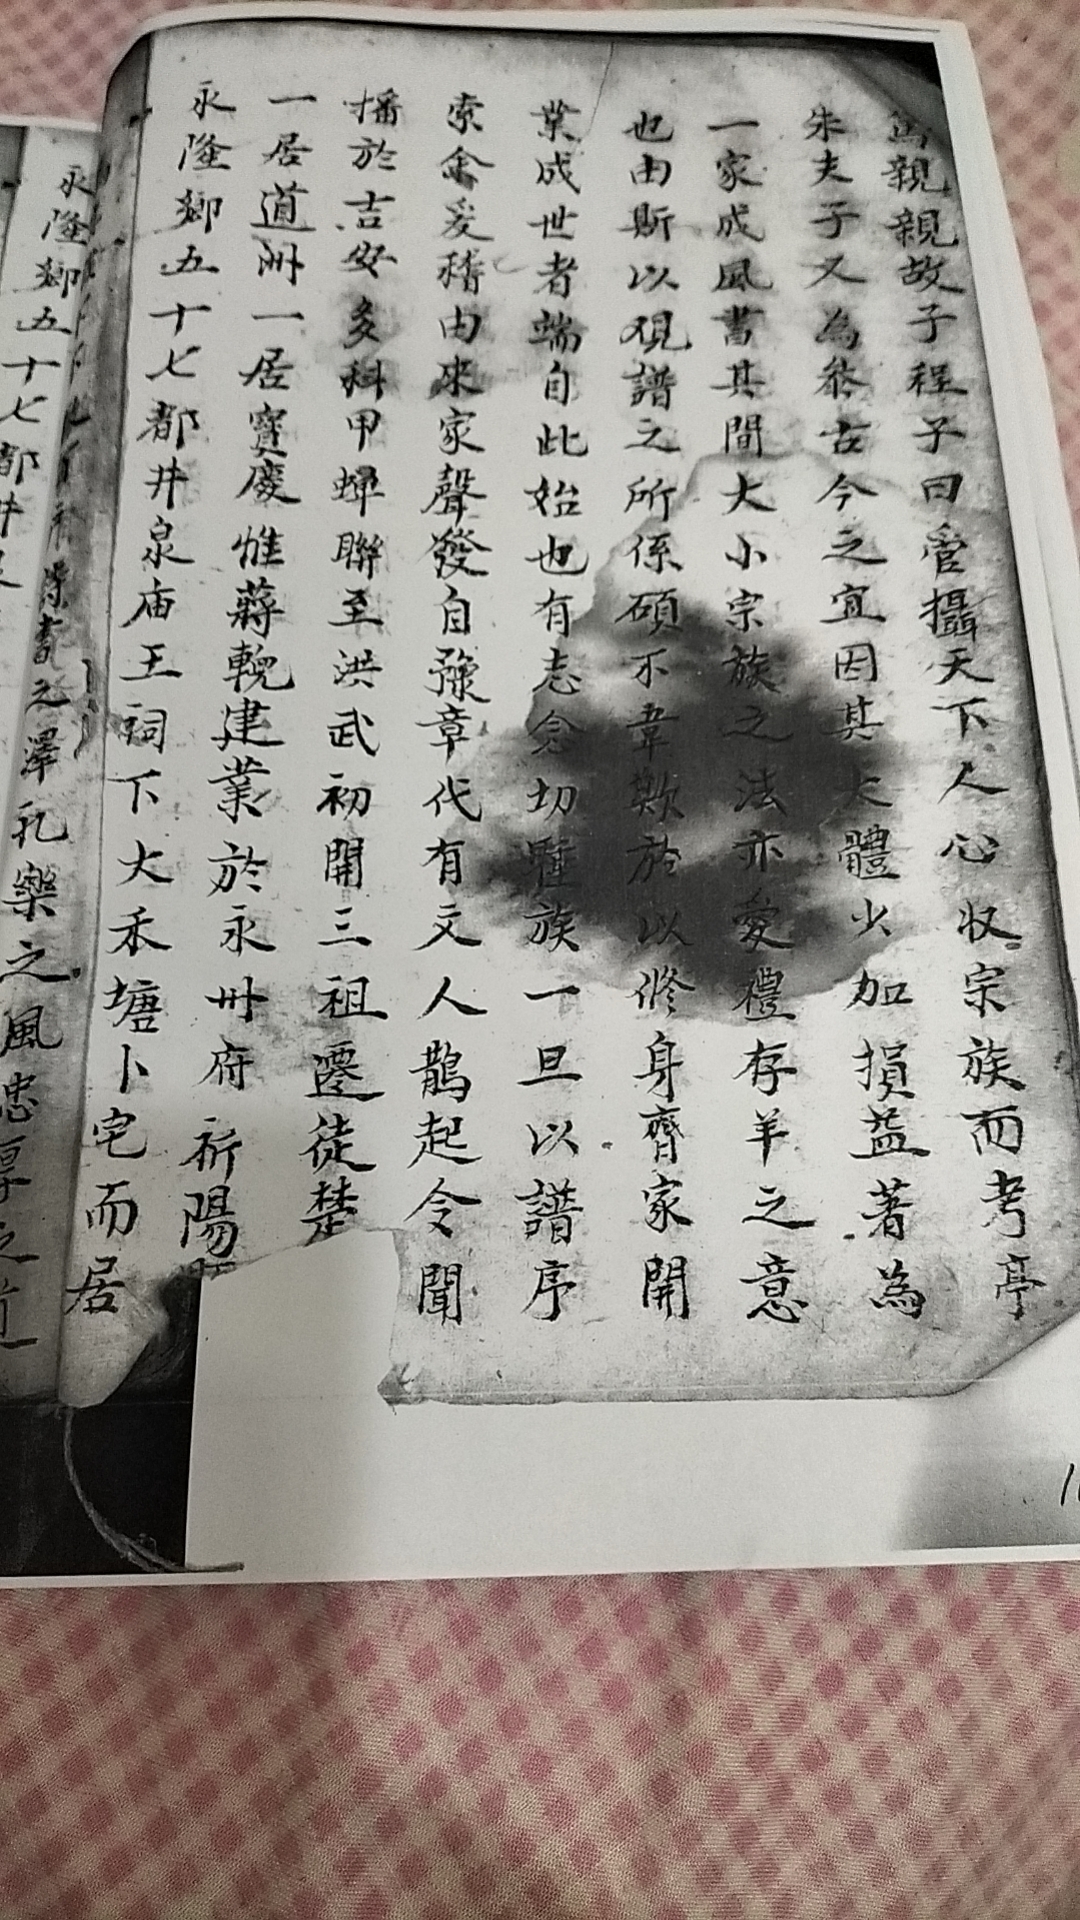 親親故子程子曰管攝天下人心收宗族而考亭
朱夫子又為叅古今之宜因其大體少加損益著為
一家成風書其間大小宗族之法亦愛禮存羊之意
也由斯以观譜之所係碩不韋歟於以修身齊家開
業成世者端自此始也有志念切 族一旦以譜序
索余爰稽由來家聲發自豫章代有文人鵲起令聞
播於吉安多科甲蟬聯至洪武初開三祖遷徒楚
一居道洲一居寶慶惟蔣輓建業於永州府祈陽
永隆鄉五十七都井泉庙王祠下大禾塘卜宅而居
永隆鄉五十七都井
書之澤礼樂之風忠厚之